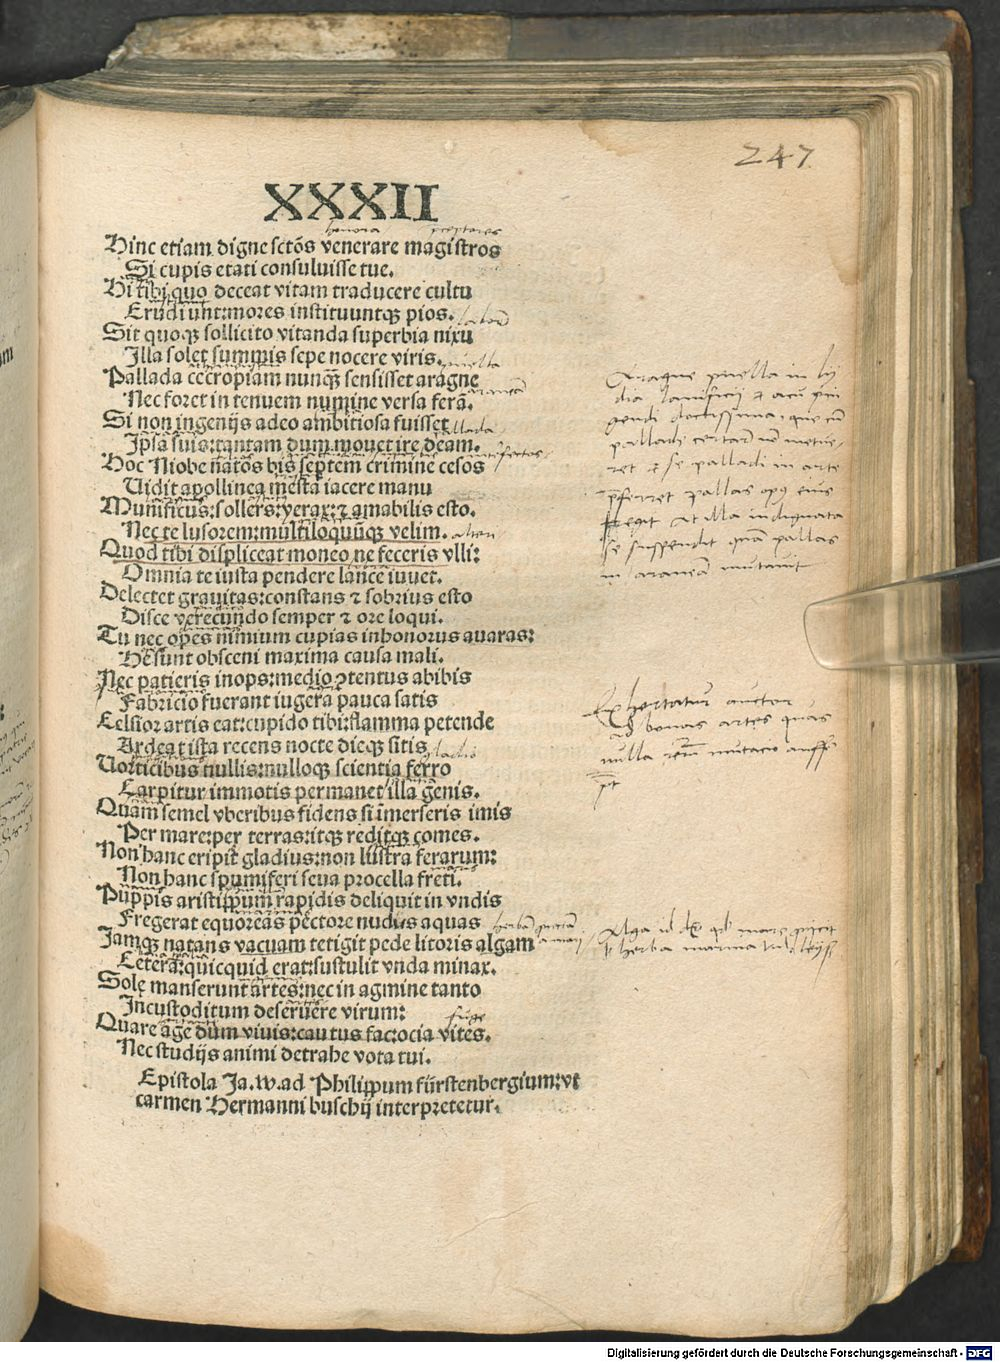 247
XXXII
honora preceptores
Hinc etiam digne sctōs venerare magistros
Si cupis etati consuluisse tue.
Hi tibi quo deceat vitam traducere cultu
Erudiunt: mores instituuntqꝫ pios.
Sit quoqꝫ sollicito vitanda superbia nixu
Illa solet summis sepe nocere viris.
puella
Pallada cecropiam nunqꝫ sensisset aragne
araneā
Nec foret in tenuem numine versa ferā.
Si non ingenijs adeo ambitiosa fuisset
pallada
Ipsa suis: tantam dum mouet ire deam.
interfectos
Hoc Niobe natos bis septem crimine cesos
Uidit apollinea mesta iacere manu
Munificus: sollers: verax: ⁊ amabilis esto.
Nec te lusorem: multiloquūqꝫ velim.
alteri
Quod tibi displiceat moneo ne feceris vlli:
Omnia te iusta pendere lance iuuet.
Delectet grauitas: constans ⁊ sobrius esto
Disce verecundo semper ⁊ ore loqui.
Tu nec opes nimium cupias inhonorus auaras:
He sunt obsceni maxima causa mali.
Nec patieris inops: medio ꝯtentus abibis
Fabricio fuerant iugera pauca satis
Celsior artis eat: cupido tibi: flamma petende
Ardeat ista recens nocte dieqꝫ sitis
gladio
Uorticibus nullis: nulloqꝫ scientia ferro
Carpitur immotis permanet illa genis.
Quam semel vberibus fidens si īmerseris imis
Per mare: per terras: itqꝫ reditqꝫ comes.
Non hanc eripit gladius: non lustra ferarum:
Non hanc spumiferi seua procella freti.
Puppis aristippum rapidis deliquit in vndis
Fregerat equoreas pectore nudus aquas
herbā
Jamqꝫ natans vacuam tetigit pede litoris algam
Cetera: quicquid erat: sustulit vnda minax.
Sole manserunt artes: nec in agmine tanto
Incustoditum deseruere virum:
fuge
Quare age dum viuis: cautus fac: ocia vites.
Nec studijs animi detrahe vota tui.
Epistola Ja. w. ad Philippum fürstenbergium: vt
carmen Hermanni buschij interpretetur.
Aragne puella in ly
dia lanificij ⁊ acu pin
gendi doctissima, que cū
palladi certare nō metue-
ret ⁊ se palladi in arte
p̄ferret pallas opꝰ eius
fregit At illa indignata
se suspendit quā pallas
in araneā mutauit
Exhortatur auctor
ad bonas artes quas
nulla rerū mutacio auffer
Alga id quod mare ...
herba marina
Digitalisierung gefördert durch die Deutsche Forschungsgemeinschaft - DFG